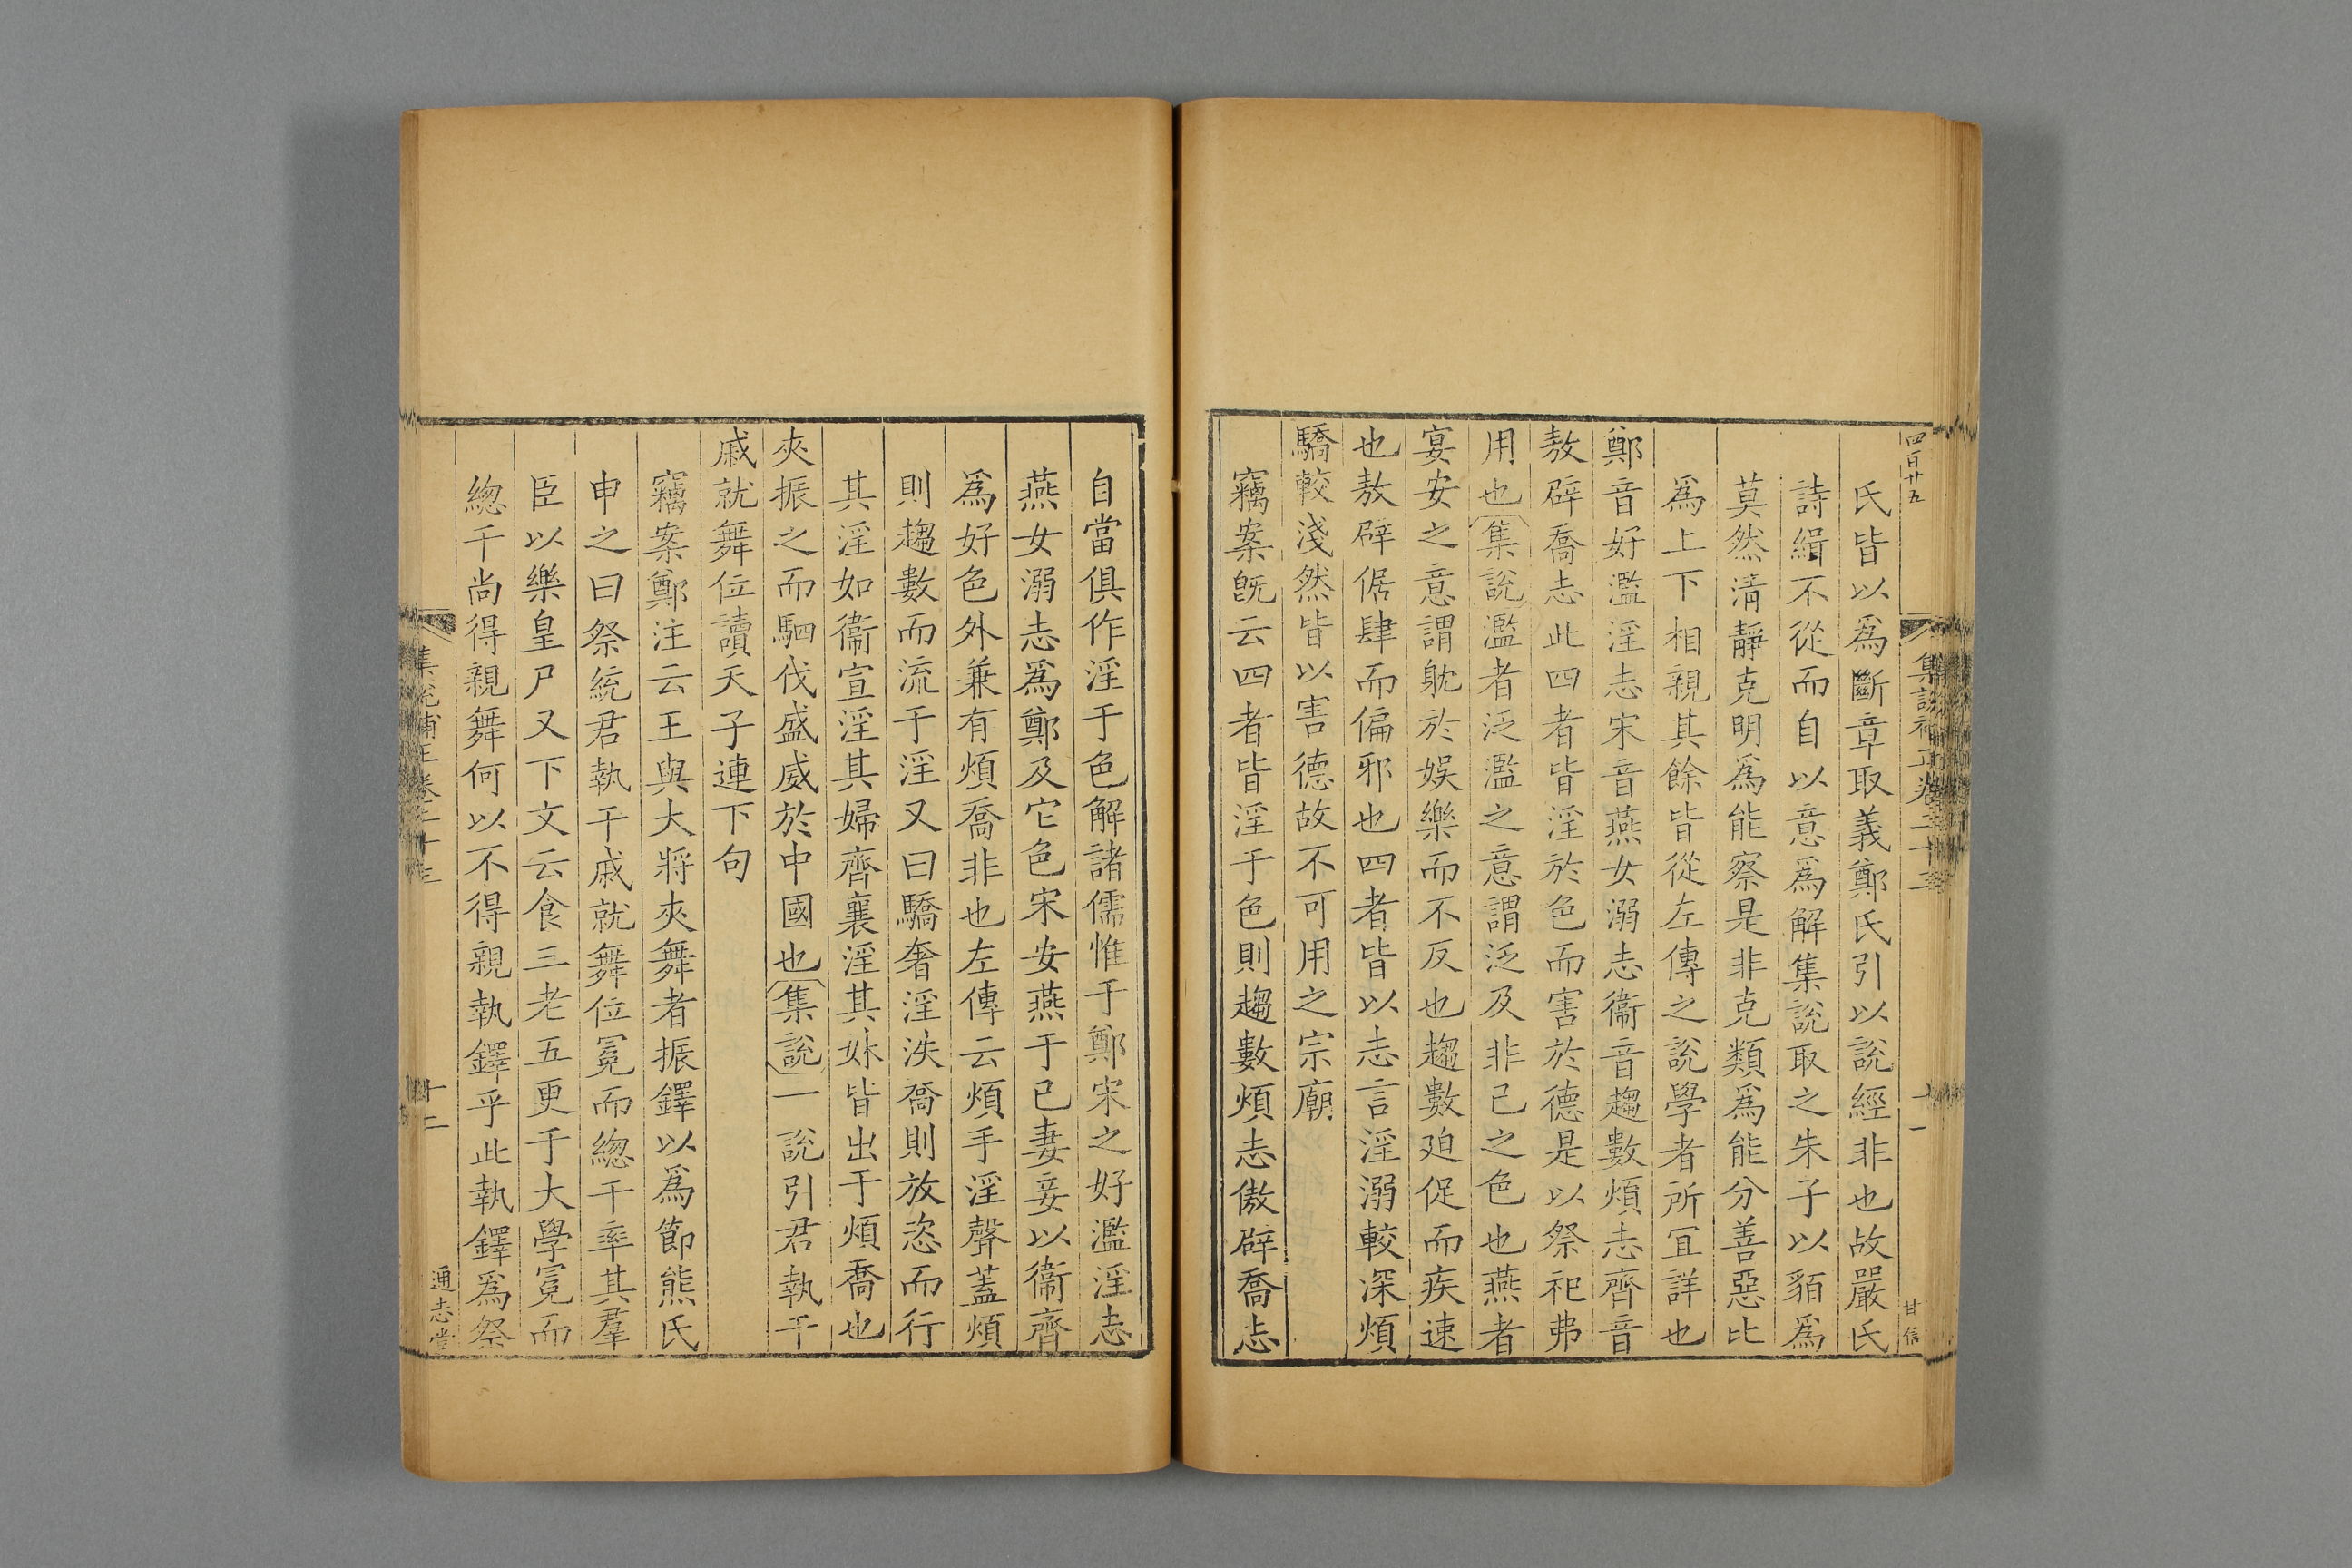 四百廿五
集說補正卷二十三
十一
甘信
氏皆以爲斷章取義鄭氏引以說經非也故嚴氏
詩緝不從而自以意爲解集說取之朱子以貊爲
莫然淸靜克明爲能察是非克類爲能分善惡比
爲上下相親其餘皆從左傳之說學者所宜詳也
鄭音好濫淫志宋音燕女溺志衞音趨數煩志齊音
敖辟喬志此四者皆淫於色而害於德是以祭祀弗
用也集說濫者泛濫之意謂泛及非己之色也燕者
宴安之意謂躭於娛樂而不反也趨數廹促而疾速
也敖辟倨肆而偏邪也四者皆以志言淫溺較深煩
驕較淺然皆以害德故不可用之宗廟
竊案旣云四者皆淫于色則趨數煩志傲辟喬志
自當俱作淫于色解諸儒惟于鄭宋之好濫淫志
燕女溺志爲鄭及它色宋安燕于已妻妾以衞齊
爲好色外兼有煩喬非也左傳云煩手淫聲蓋煩
則趨數而流于淫又曰驕奢淫泆喬則放恣而行
其淫如衞宣淫其婦齊襄淫其妹皆出于煩喬也
夾振之而駟伐盛威於中國也集說一說引君執干
戚就舞位讀天子連下句
竊案鄭注云王與大將夾舞者振鐸以爲節熊氏
申之曰祭統君執干戚就舞位冕而緫干率其羣
臣以樂皇尸又下文云食三老五更于大學冕而
緫干尚得親舞何以不得親執鐸乎此執鐸爲祭
集說補正卷二十三
十二
通志堂